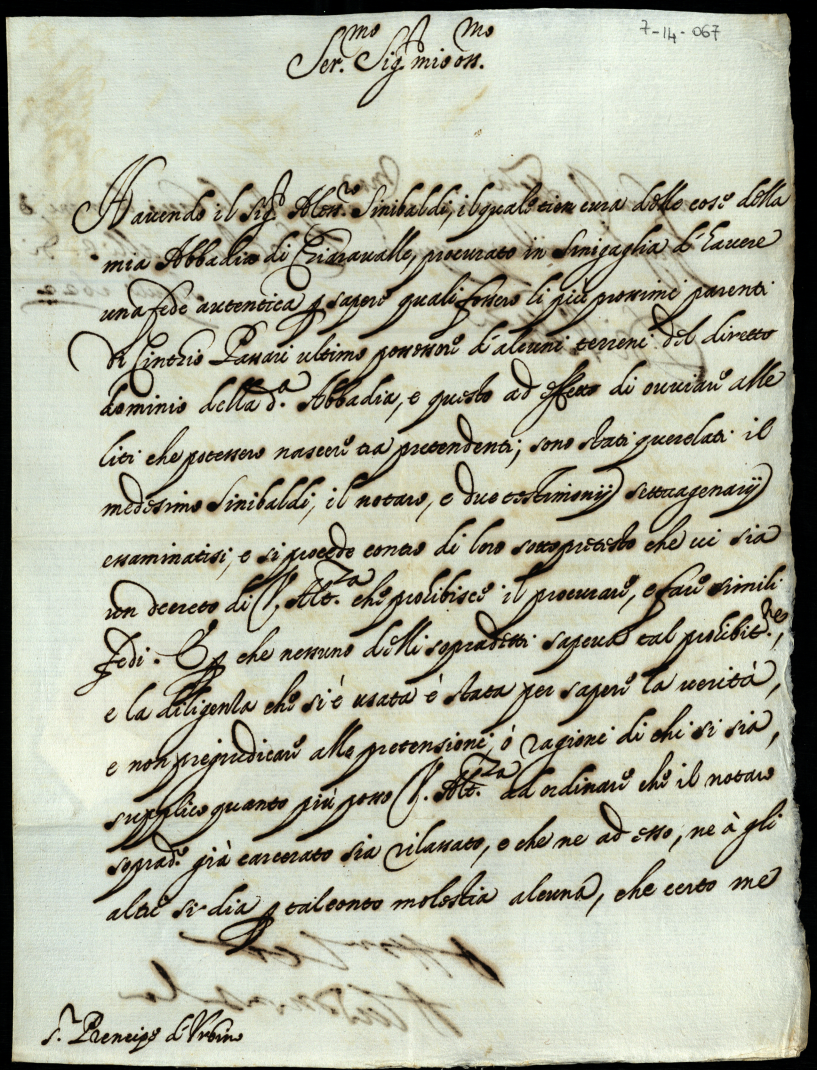 7-14-067
Ser.mo Sig.r mio oss.mo
Havendo il Sig.r Aless.ro Sinibaldi, il quale tien cura delle cose della
mia Abbadia di Chiaravalle, procurato in Sinigaglia d'havere
una fede autentica p saper quali fossero li più prossimi parenti
di Cinthio Passari ultimo possessore d'alcuni terreni del diretto
dominio della d.a Abbadia, e questo ad effetto di ovviare alle
liti che potessero nascere tra pretendenti; sono stati querelati il
medesimo Sinibaldi, il notaro, e due testimonij settuagenarij
essaminatisi, e si procede contro di loro sotto pretesto che vi sia
un decreto di V. Alt.za che prohibisce il procurare, e fare simili
fedi. E p che nessuno delli sopradetti sapeva tal prohibit.ne,
e la diligenza che si è usata è stata per sapere la verità,
e non prejudicare alle pretensioni, ò ragioni di chi si sia,
supplico quanto più posso V. Alt.za ad ordinare che il notaro
soprad.o già carcerato sia rilassato, e che ne ad esso, ne à gli
altri si dia p tal conto molestia alcuna, che certo me
S.r Prencipe d'Urbino